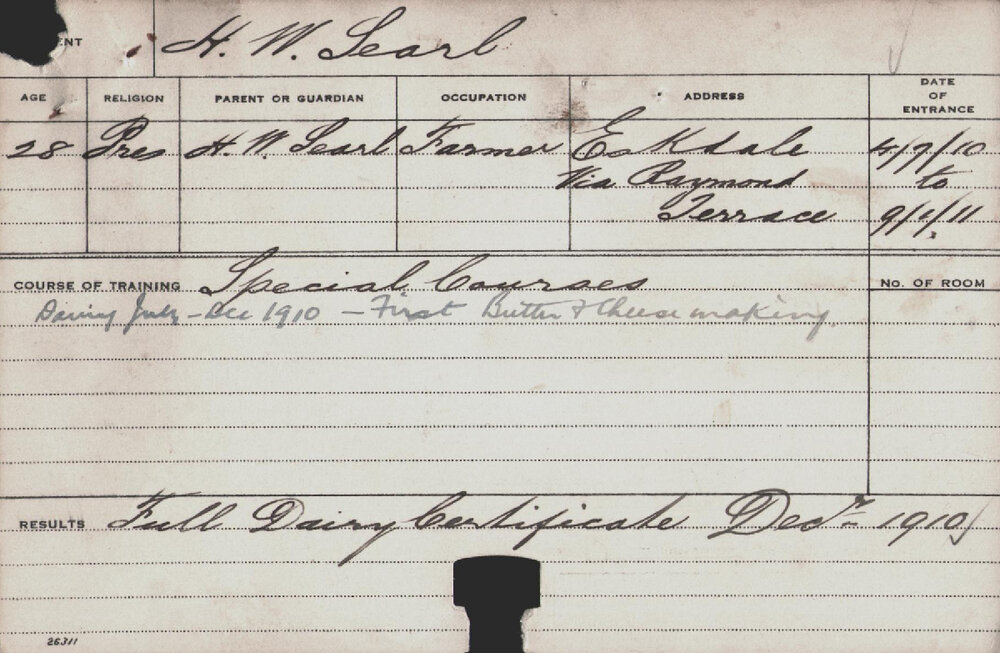 ENT H. W. Searl
AGE RELIGION PARENT OR GUARDIAN OCCUPATION ADDRESS DATE OF ENTRANCE
28 Pres H. W. Searl Farmer Eskdale 4/7/10
Via Raymond to
Terrace 9/1/11
COURSE OF TRAINING Special Courses NO. OF ROOM
Dairying July - Dec 1910 - First Butter & Cheese making
RESULTS Full Dairy Certificate Decr 1910
26311